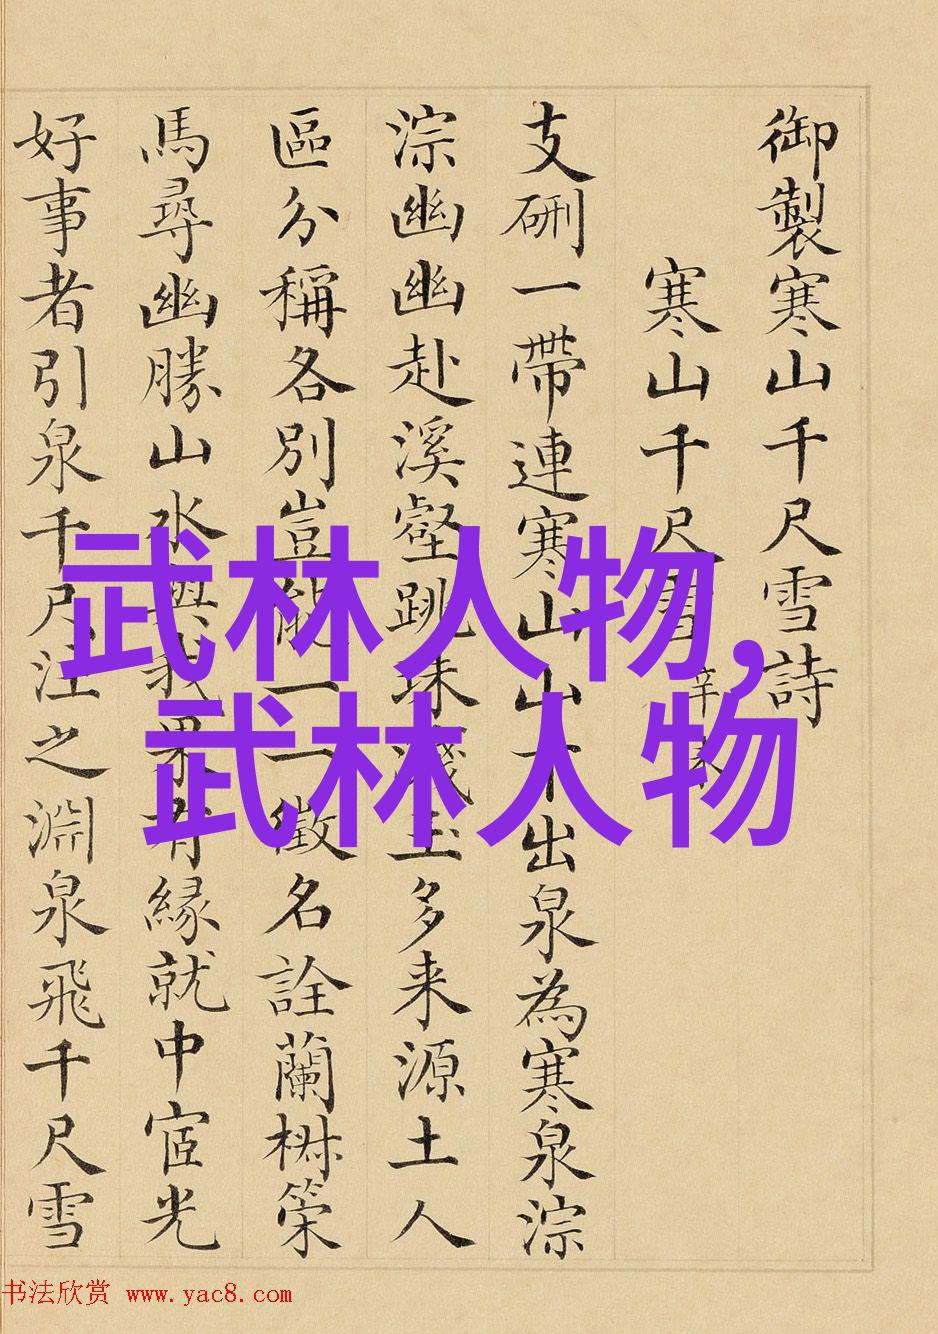 御製寒山千尺雪詩
寒山千尺雪 辛未
支硎一帶連寒山山下出泉為寒泉淙
淙幽幽赴溪壑跳珠濺玉多来源土人
區分稱各別豈能一一徵名詮蘭椒策
馬尋幽勝山水與我果有緣就中宧光
好事者引泉千尺注之淵泉飛千尺雪
武林人物,
武林人物
书法欣赏 www.yac8.com